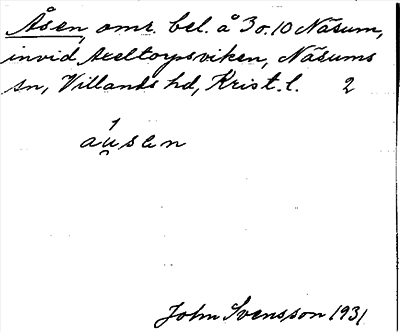 Åsen, omr. bel. å 3 o. 10 Näsum,
invid Axeltorpsviken, Näsums
sn, Villands hd, Krist. l. 2
1
áu̯sen
John Svensson 1931